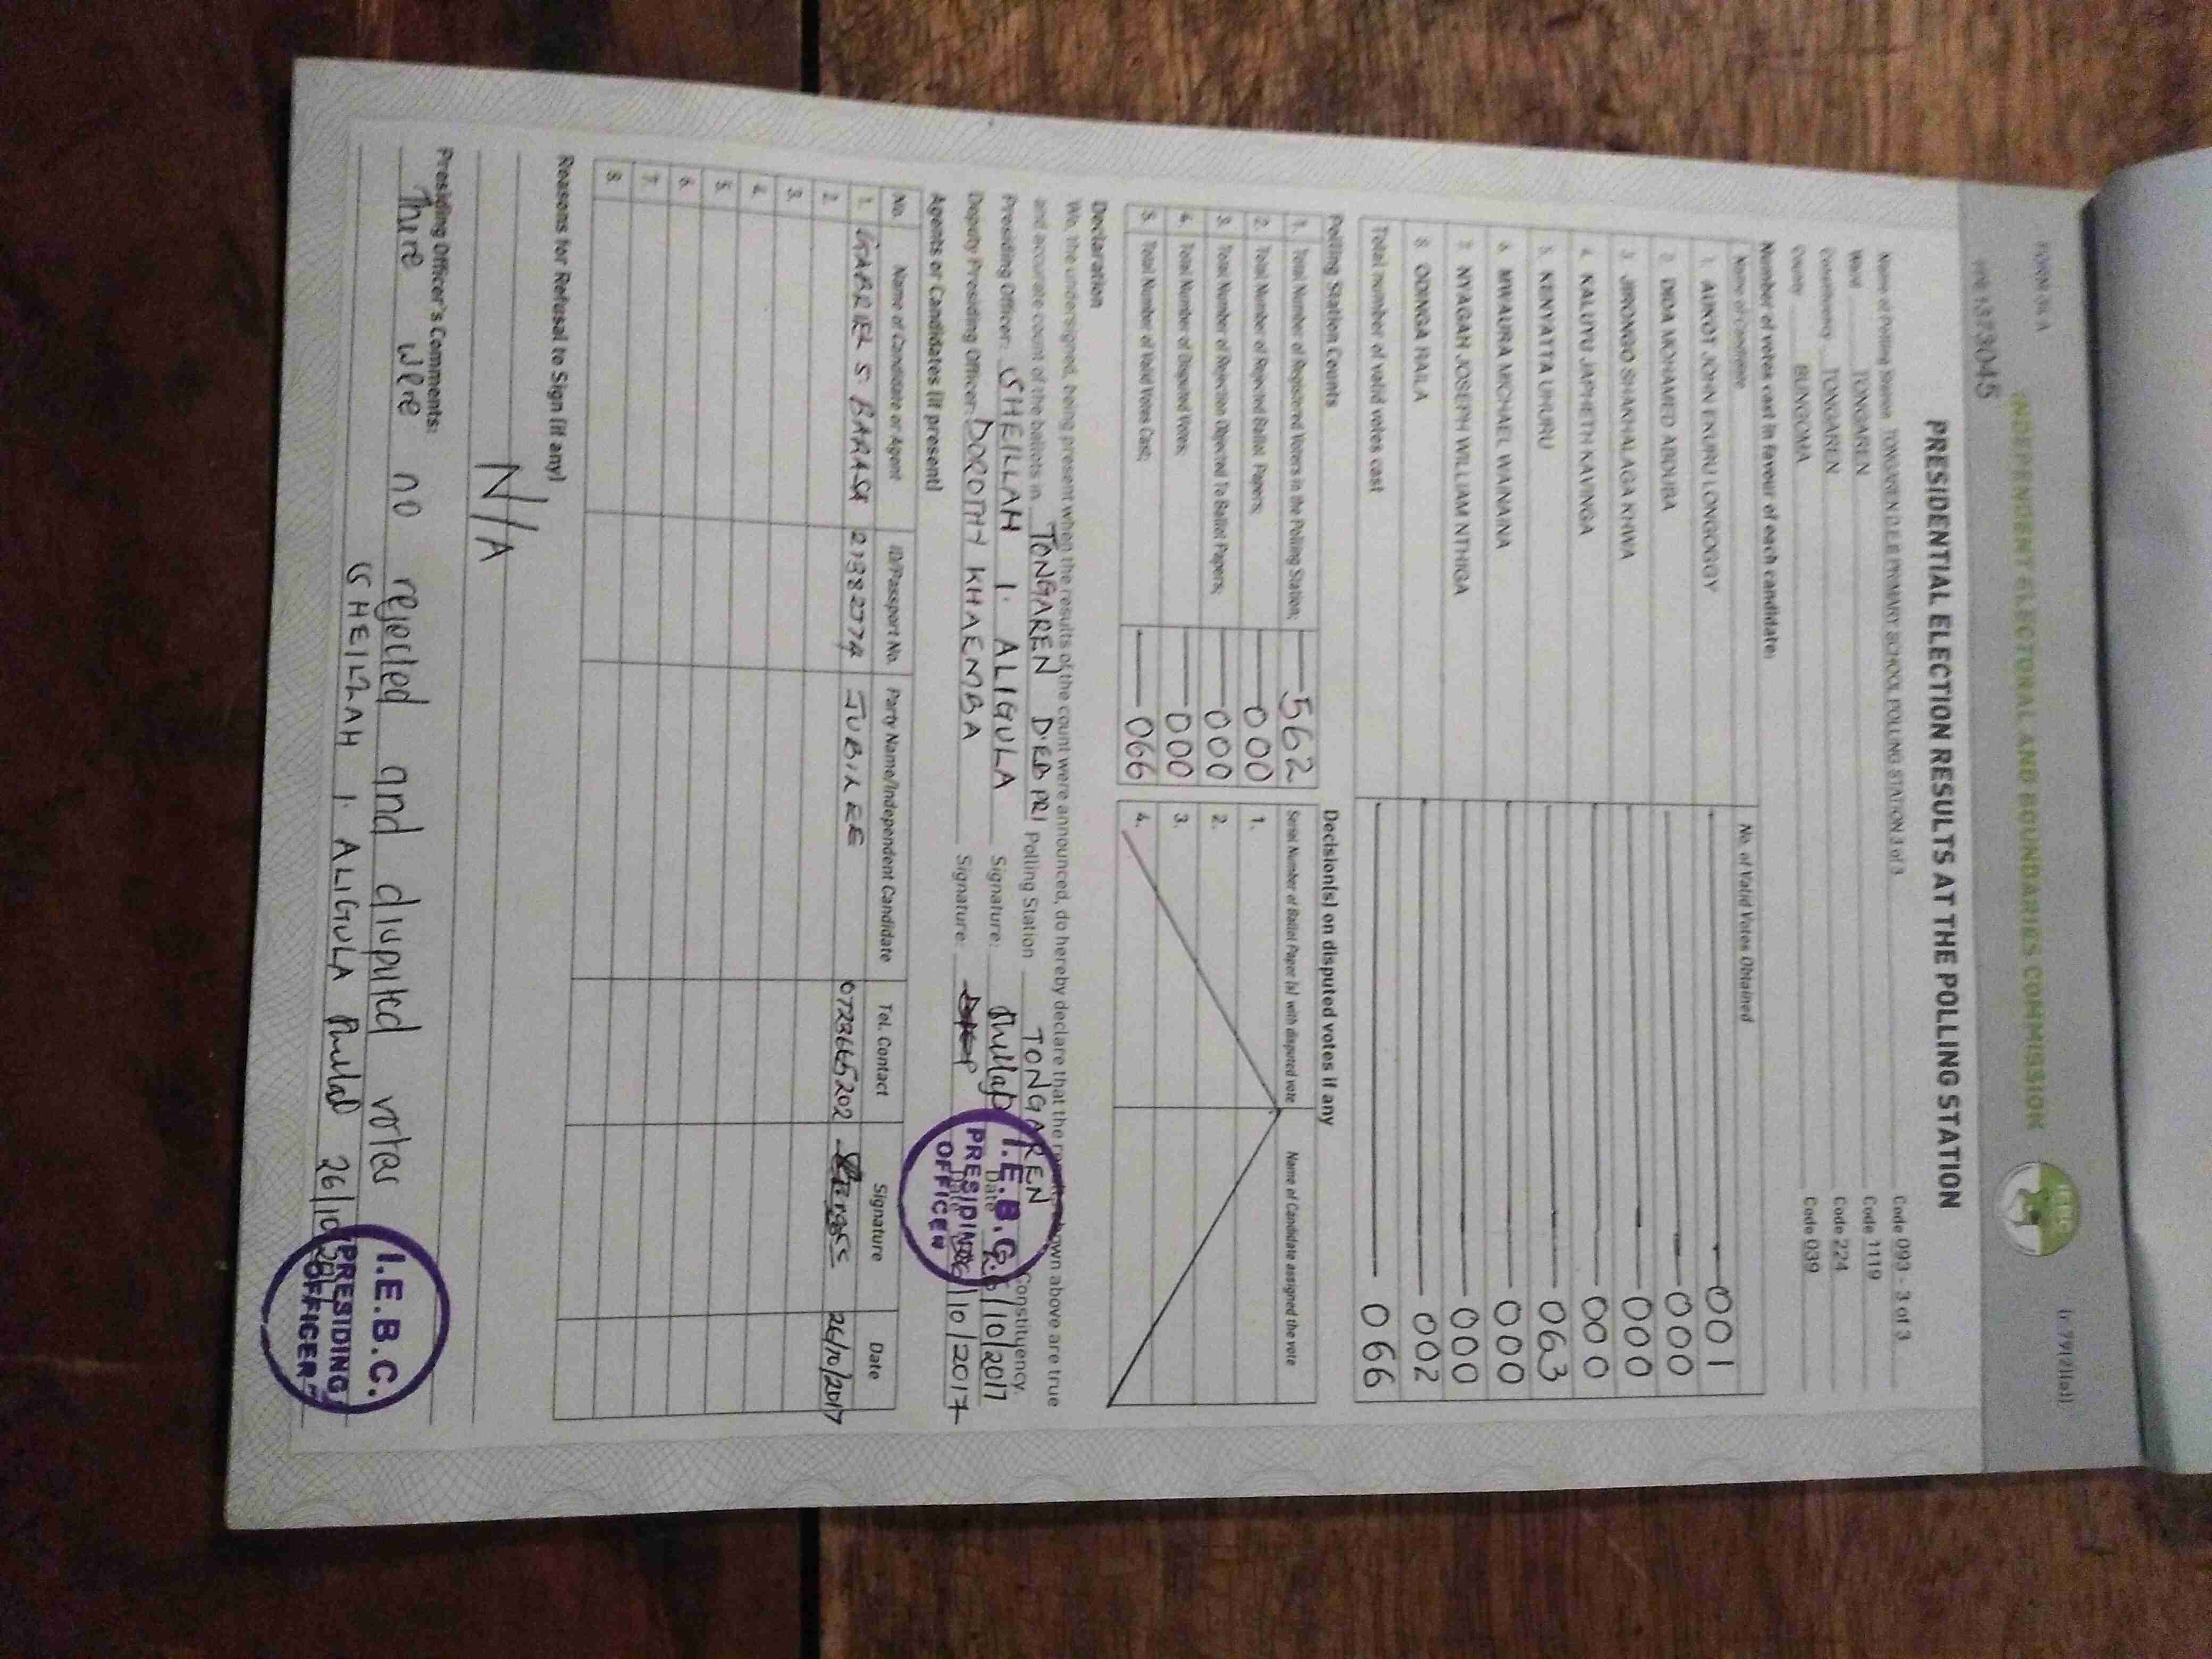 FORM 34 A
(r.79(2)(a))
INDEPENDENT ELECTORAL AND BOUNDARIES COMMISSION
IEBC
PRESIDENTIAL ELECTION RESULTS AT THE POLLING STATION
Name of Polling Station TONGAREN D.E.B PRIMARY SCHOOL POLLING STATION 3 of 3 Code 093 - 3 of 3
Ward TONGAREN Code 1119
Constituency TONGAREN Code 224
County BUNGOMA Code 039
Number of votes cast in favour of each candidate:
Name of candidate No. of Valid Votes Obtained
1. AUKOT JOHN EKURU LONGOGGY 001
2. DIDA MOHAMED ABDUBA 000
3. JIRONGO SHAKHALAGA KHWA 000
4. KALUYU JAPHETH KAVINGA 000
5. KENYATTA UHURU 063
6. MWAURA MICHAEL WAINAINA 000
7. NYAGAH JOSEPH WILLIAM NTHIGA 000
8. ODINGA RAILA 002
Total number of valid votes cast 066
Polling Station Counts
1. Total Number of Registered Voters in the Polling Station; 562
2. Total Number of Rejected Ballot Papers; 000
3. Total Number of Rejection Objected To Ballot Papers; 000
4. Total Number of Disputed Votes; 000
5. Total Number of Valid Votes Cast; 066
Decision(s) on disputed votes if any
Serial Number of Ballot Paper (s) with disputed vote Name of Candidate assigned the vote
1.
2.
3.
4.
Declaration
We, the undersigned, being present when the results of the count were announced, do hereby declare that the shown above are true
and accurate count of the ballots in TONGAREN D.E.B PRI Polling Station TONGAREN Constituency.
Presiding Officer: SHEILLAH I. ALIGULA Signature: Date 26/10/2017
Deputy Presiding Officer: DOROTHY KHAEMBA Signature: Date 26/10/2017
I.E.B.C.
PRESIDING
OFFICER
Agents or Candidates (if present)
No. Name of Candidate or Agent ID/Passport No. Party Name/Independent Candidate Tel. Contact Signature Date
1. GABRIEL S. BARASA JUBILEE 26/10/2017
2.
3.
4.
5.
6.
7.
8.
Reasons for Refusal to Sign (if any)
N/A
Presiding Officer's Comments:
There were no rejected and disputed votes
SHEILLAH I. ALIGULA 26/10/2017
I.E.B.C.
PRESIDING
OFFICER